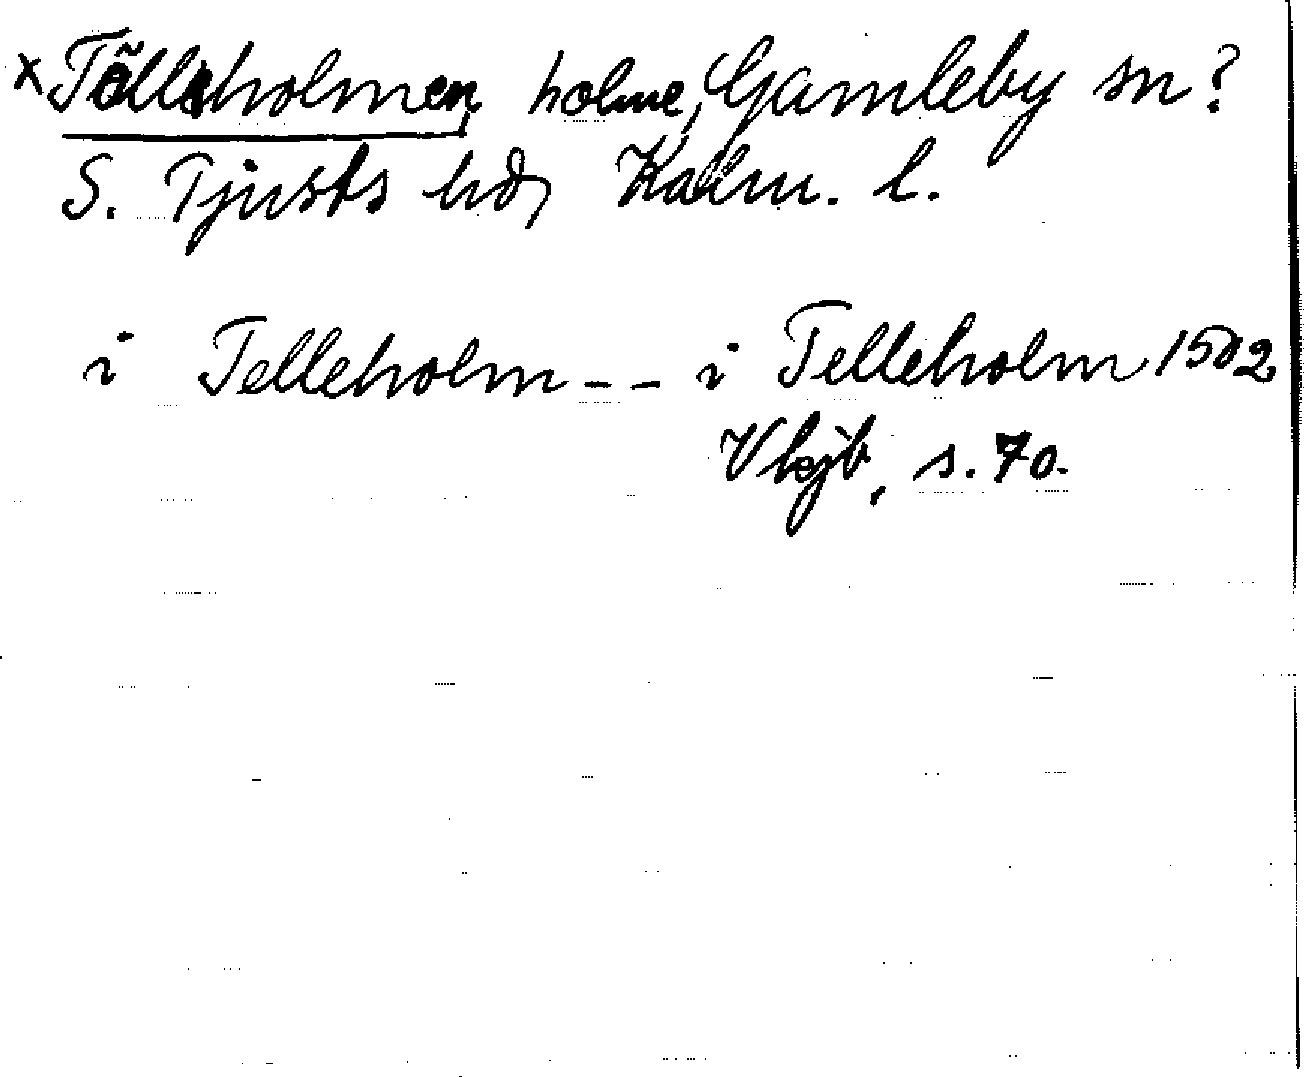 x Tälleholmen, holme, Gamleby sn?
S. Tjusts hd, Kalm. l.
i Telleholm -- i Telleholm 1502
Vkjb, s. 70.